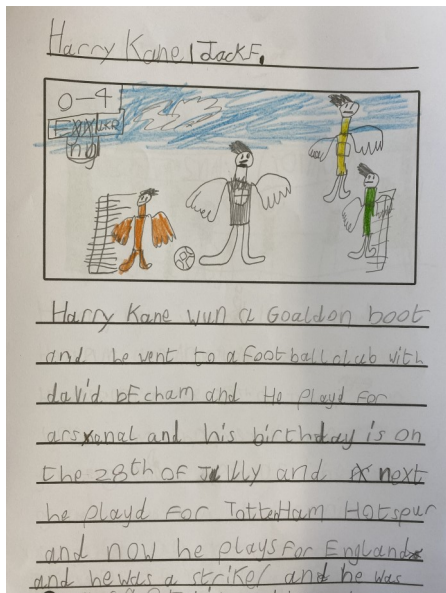 Harry Kane | JackF.
0-4
UKR
Harry Kane wun a Goaldon boot
and he went to a football club with
david bEcham and He playd for
arsxenal and his birthday is on
the 28th oF Jully and next
he playd For TotterHam Hotspur
and now he plays for England
and he was a striker and he was